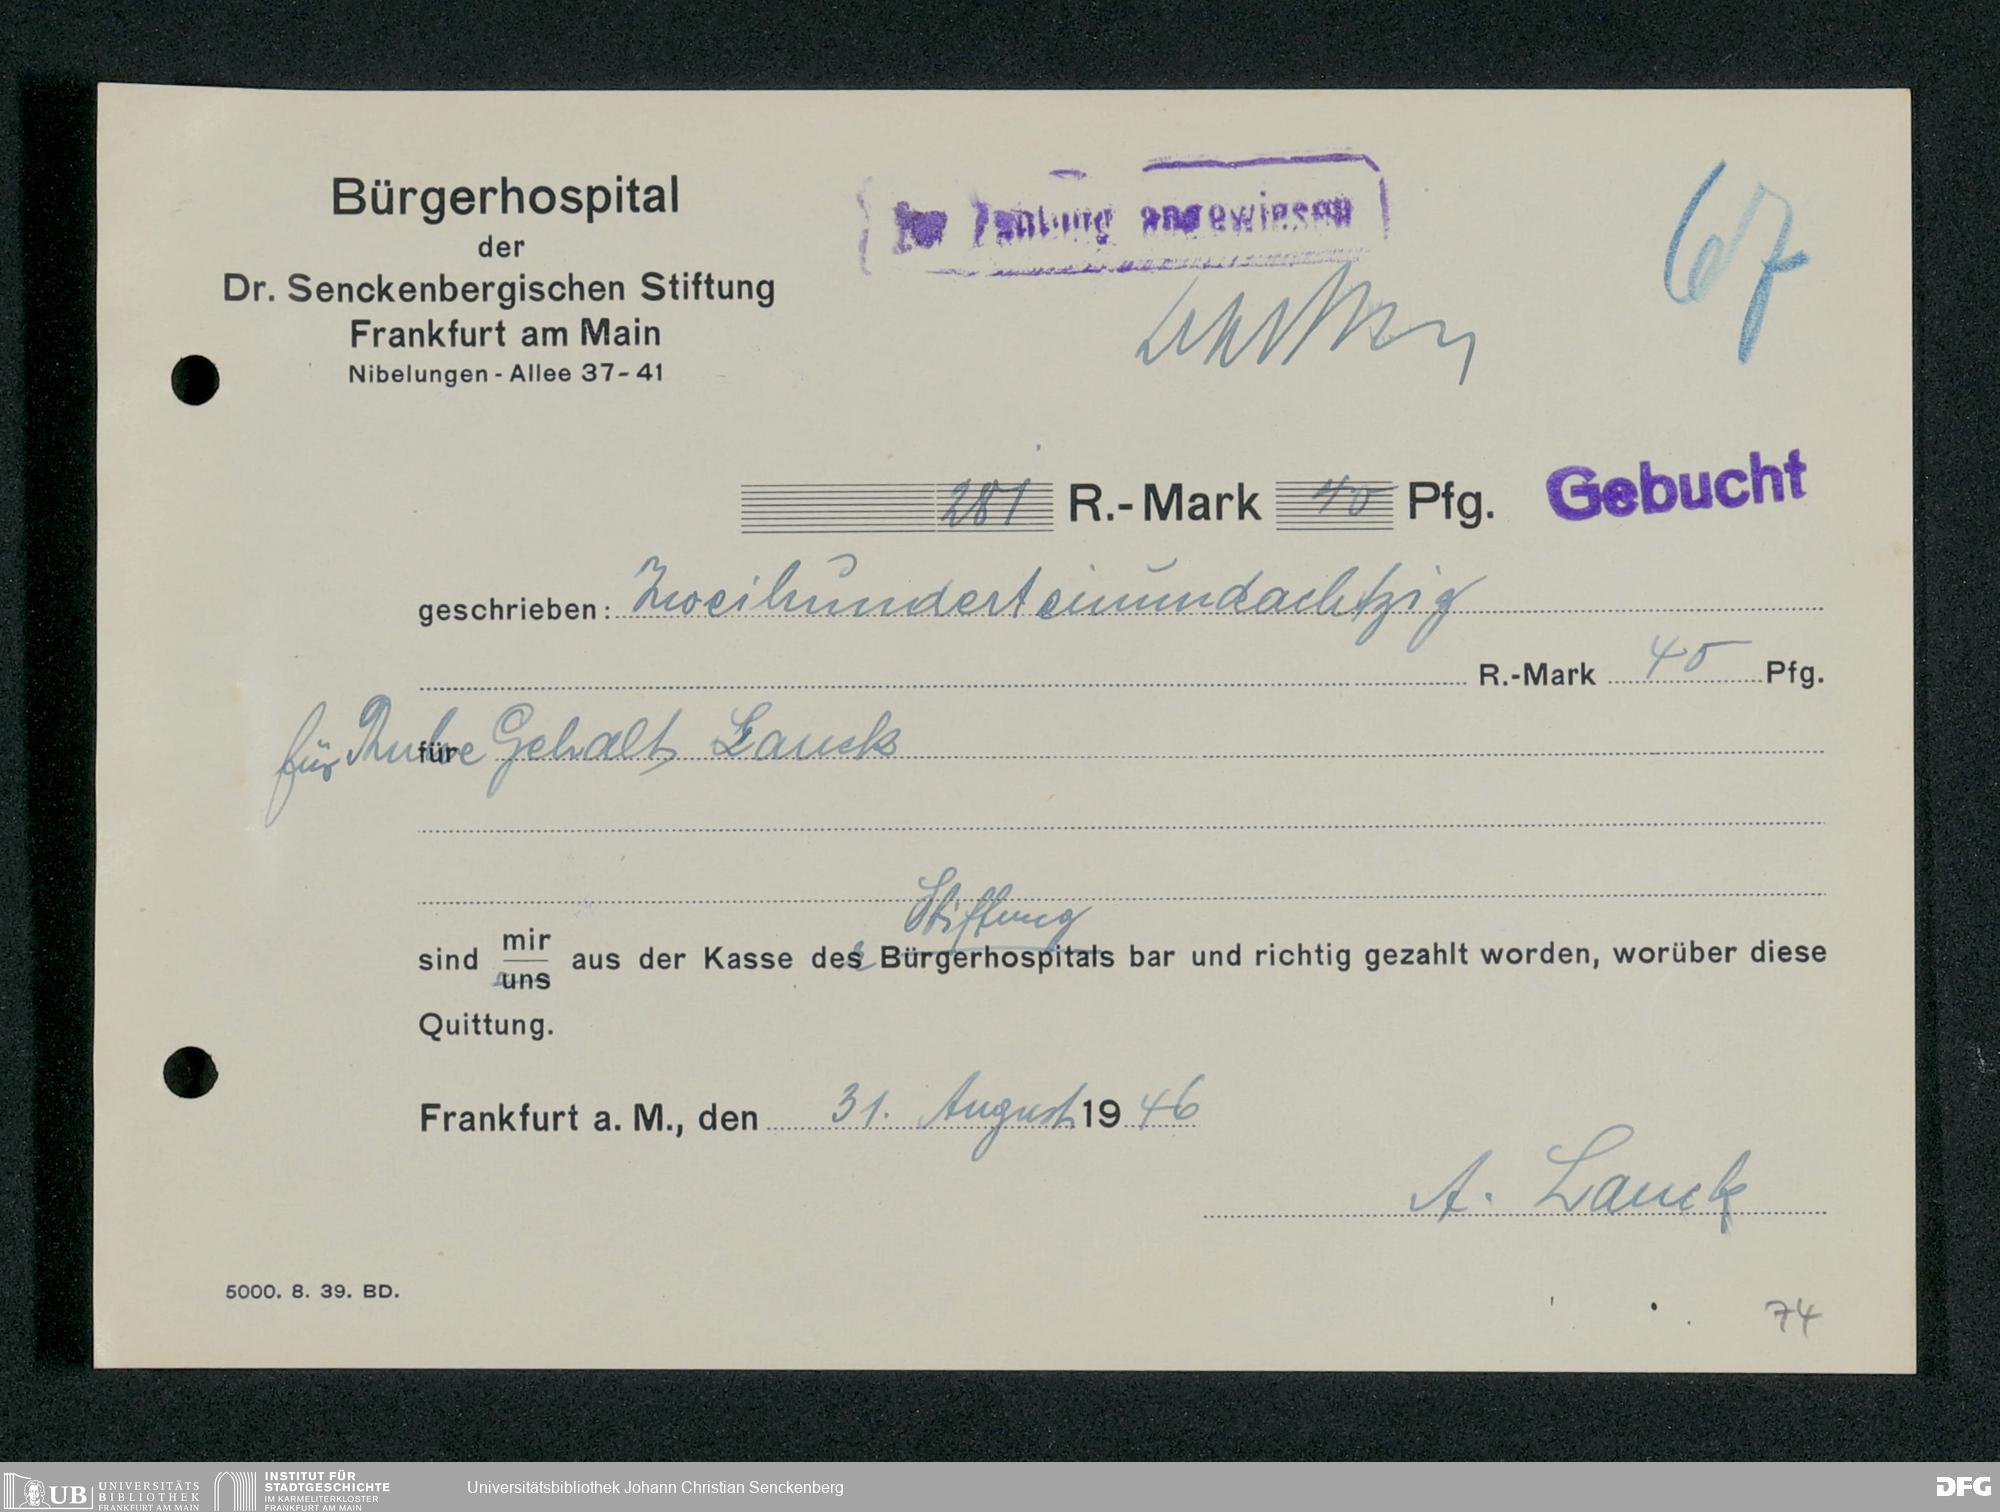 Bürgerhospital
der
Dr. Senckenbergischen Stiftung
Frankfurt am Main
Nibelungen-Allee 37-41
Zur Zahlung angewiesen
67
281 R.-Mark 40 Pfg.
Gebucht
geschrieben: Zweihunderteinundachtzig
R.-Mark 40 Pfg.
für Ruhe Gehalt Lauck
für
Stiftung
sind mir/uns aus der Kasse des Bürgerhospitals bar und richtig gezahlt worden, worüber diese
Quittung.
Frankfurt a. M., den 31. August 1946
A. Lauck
5000. 8. 39. BD.
74
UB UNIVERSITÄTS BIBLIOTHEK FRANKFURT AM MAIN
INSTITUT FÜR STADTGESCHICHTE IM KARMELITERKLOSTER FRANKFURT AM MAIN
Universitätsbibliothek Johann Christian Senckenberg
DFG